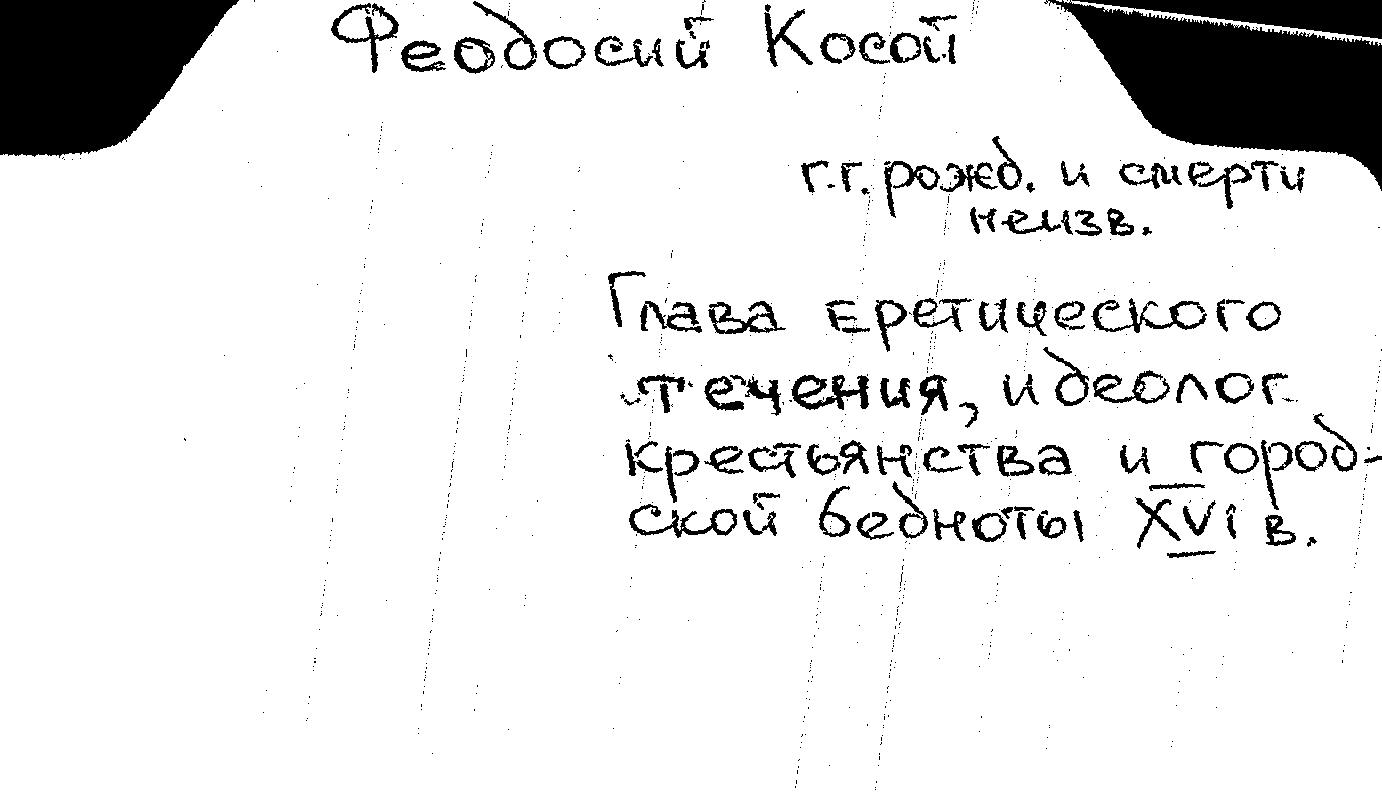 Феодосий Косой
г.г. рожд. и смерти
неизв.
Глава еретического
течения, идеолог
крестьянства и город-
ской бедноты XVI в.